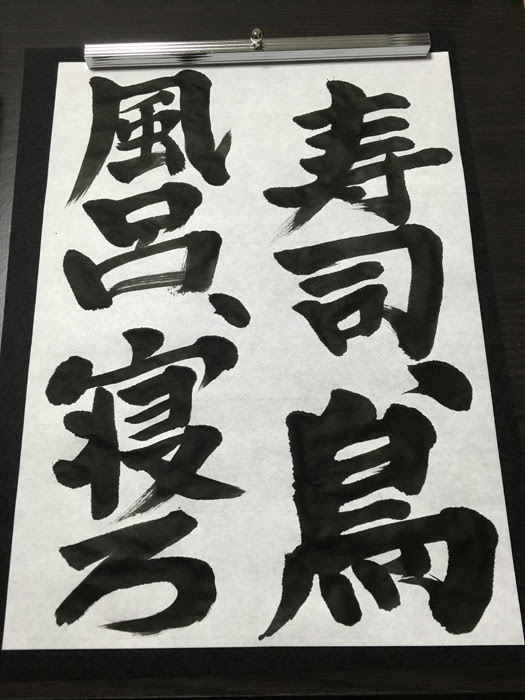 寿司、鳥
風呂、寝ろ